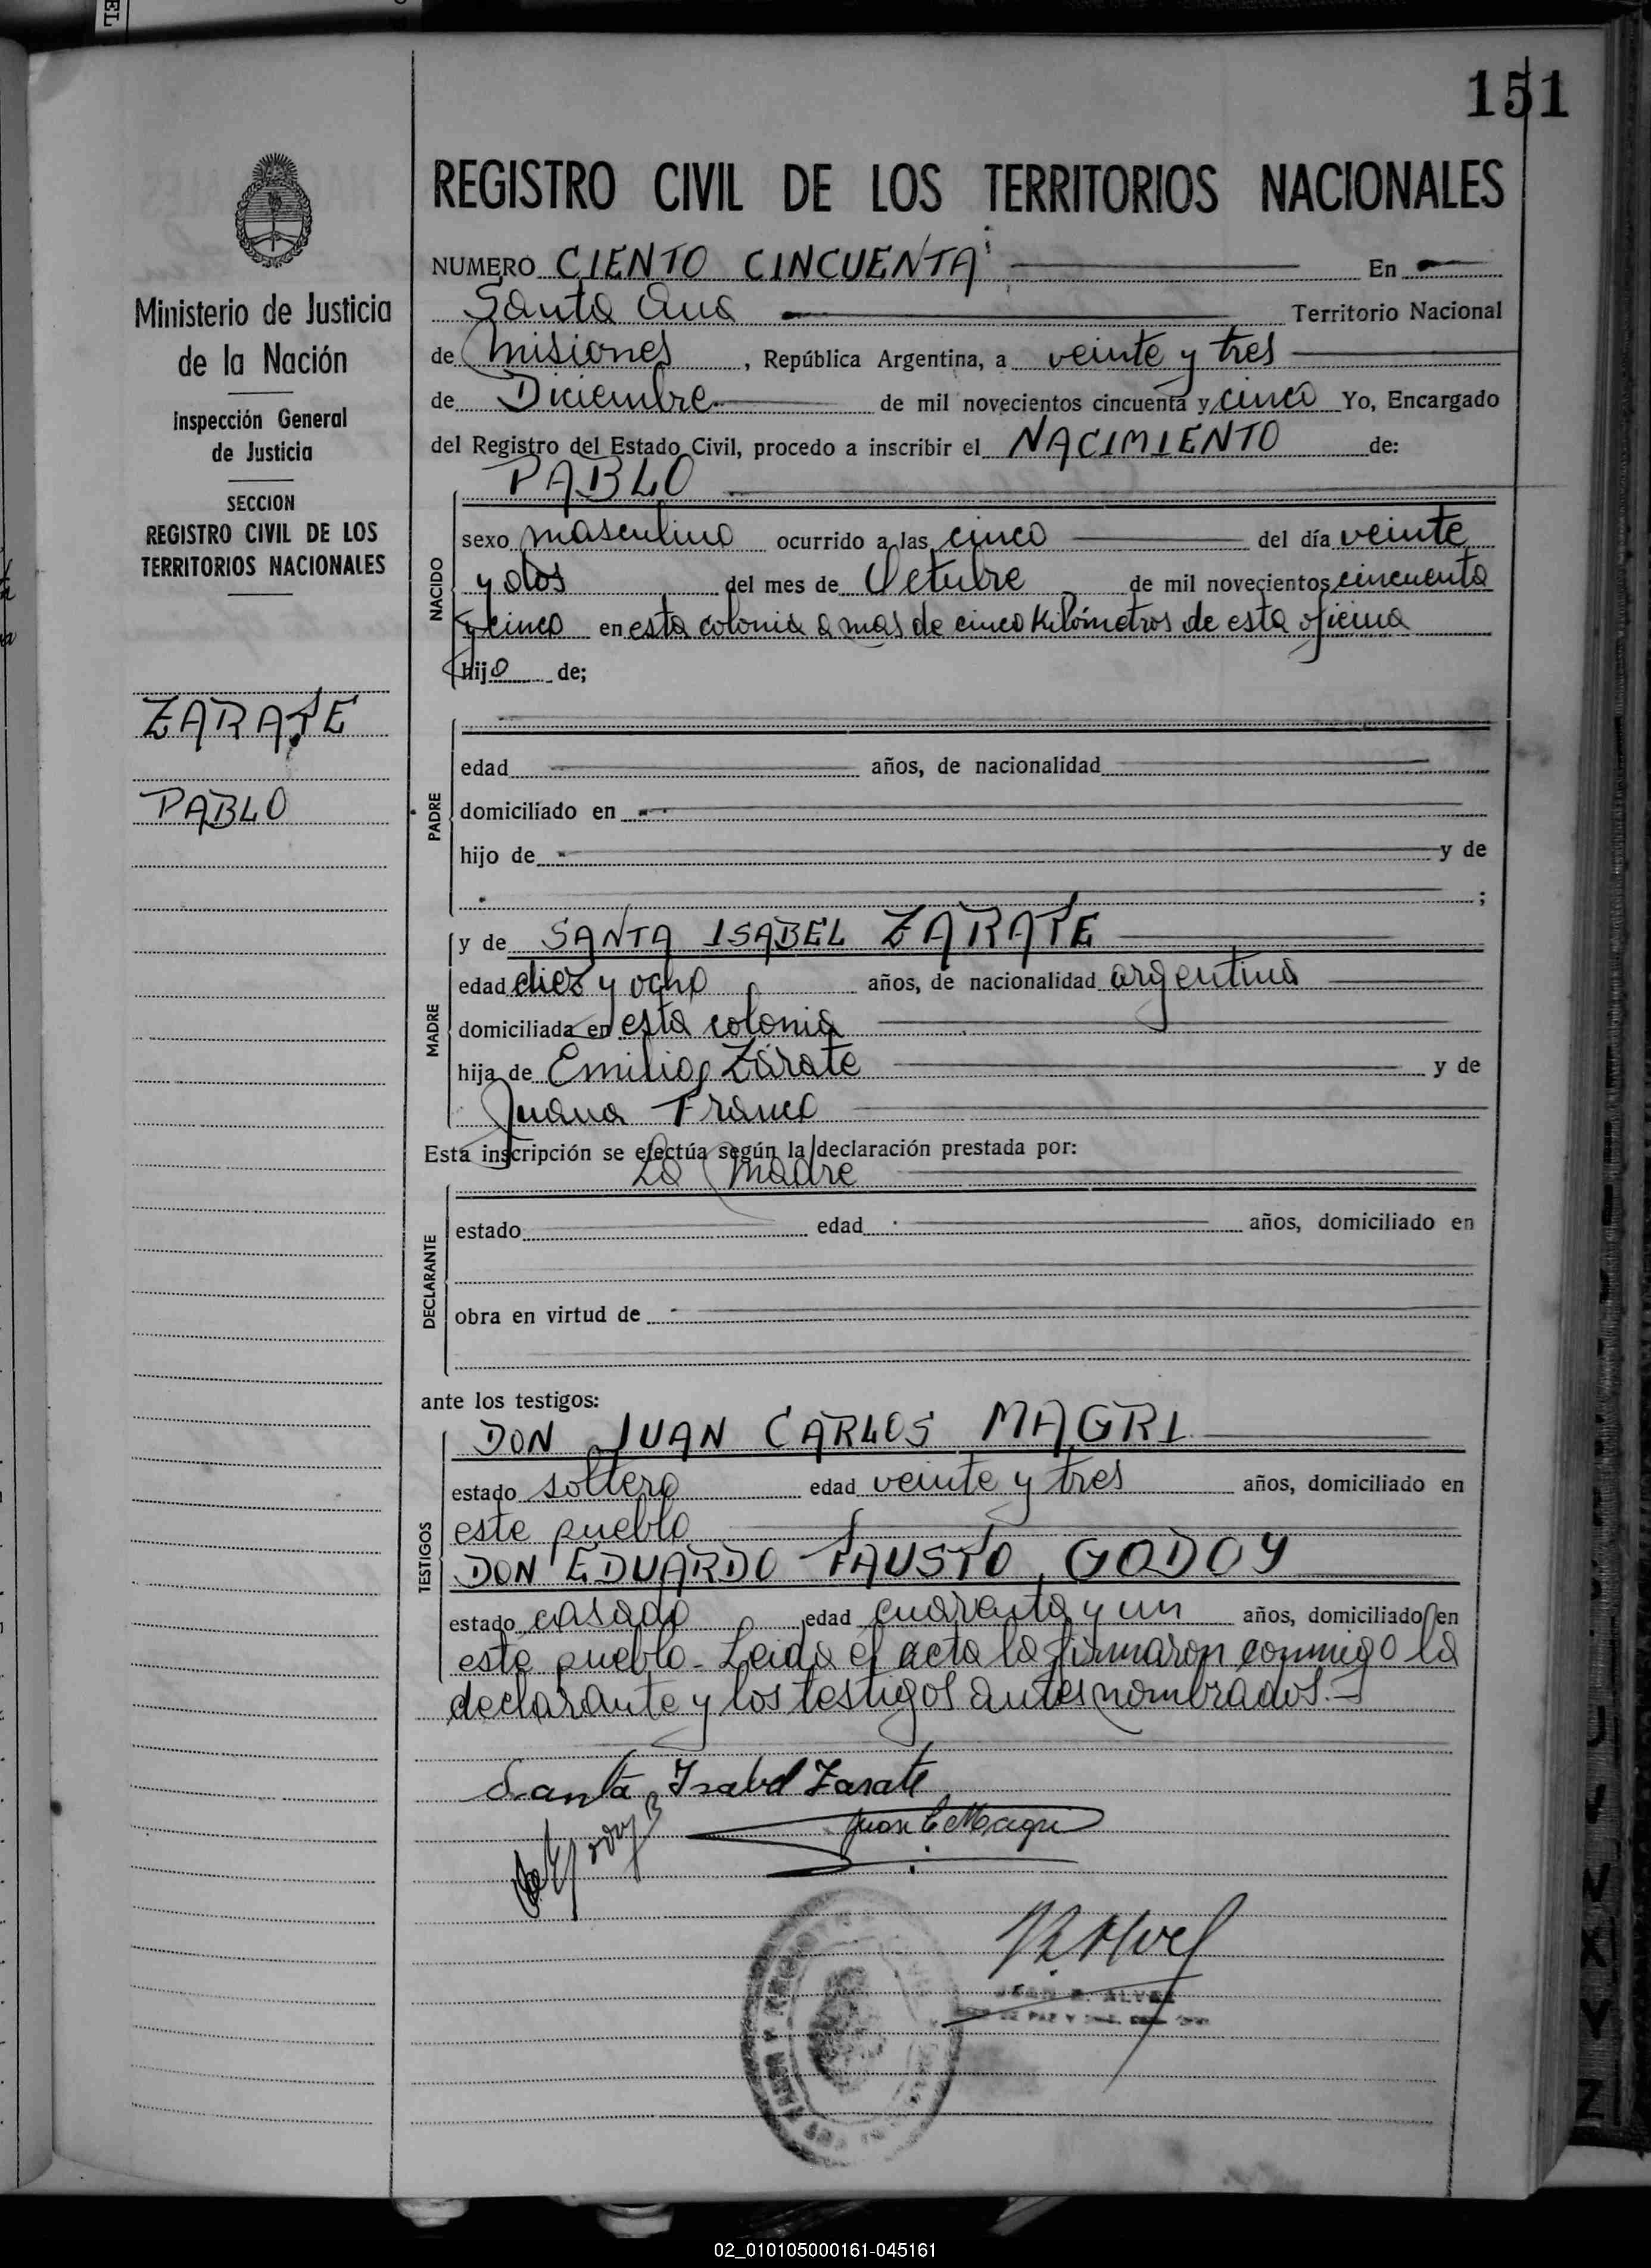 151
REGISTRO CIVIL DE LOS TERRITORIOS NACIONALES
NUMERO CIENTO CINCUENTA En
Santa Ana Territorio Nacional
de Misiones, República Argentina, a veinte y tres
de Diciembre de mil novecientos cincuenta y cinco Yo, Encargado
del Registro del Estado Civil, procedo a inscribir el NACIMIENTO de:
PABLO
NACIDO
sexo masculino ocurrido a las cinco del día veinte
y dos del mes de Octubre de mil novecientos cincuenta
y cinco en esta colonia a mas de cinco Kilómetros de esta oficina
hijo de;
PADRE
edad años, de nacionalidad
domiciliado en
hijo de y de
;
y de SANTA ISABEL ZARATE
MADRE
edad diez y ocho años, de nacionalidad argentina
domiciliada en esta colonia
hija de Emilio Zárate y de
Juana Franco
Esta inscripción se efectúa según la declaración prestada por:
La Madre
DECLARANTE
estado edad años, domiciliado en
obra en virtud de
ante los testigos:
TESTIGOS
DON JUAN CARLOS MAGRI
estado soltero edad veinte y tres años, domiciliado en
este pueblo
DON EDUARDO FAUSTO GODOY
estado casado edad cuarenta y un años, domiciliado en
este pueblo - Leida el acta la firmaron conmigo la
declarante y los testigos antes nombrados.-
Santa Isabel Zarate
Juan C Magri
Ministerio de Justicia
de la Nación
Inspección General
de Justicia
SECCION
REGISTRO CIVIL DE LOS
TERRITORIOS NACIONALES
ZARATE
PABLO
02_010105000161-045161